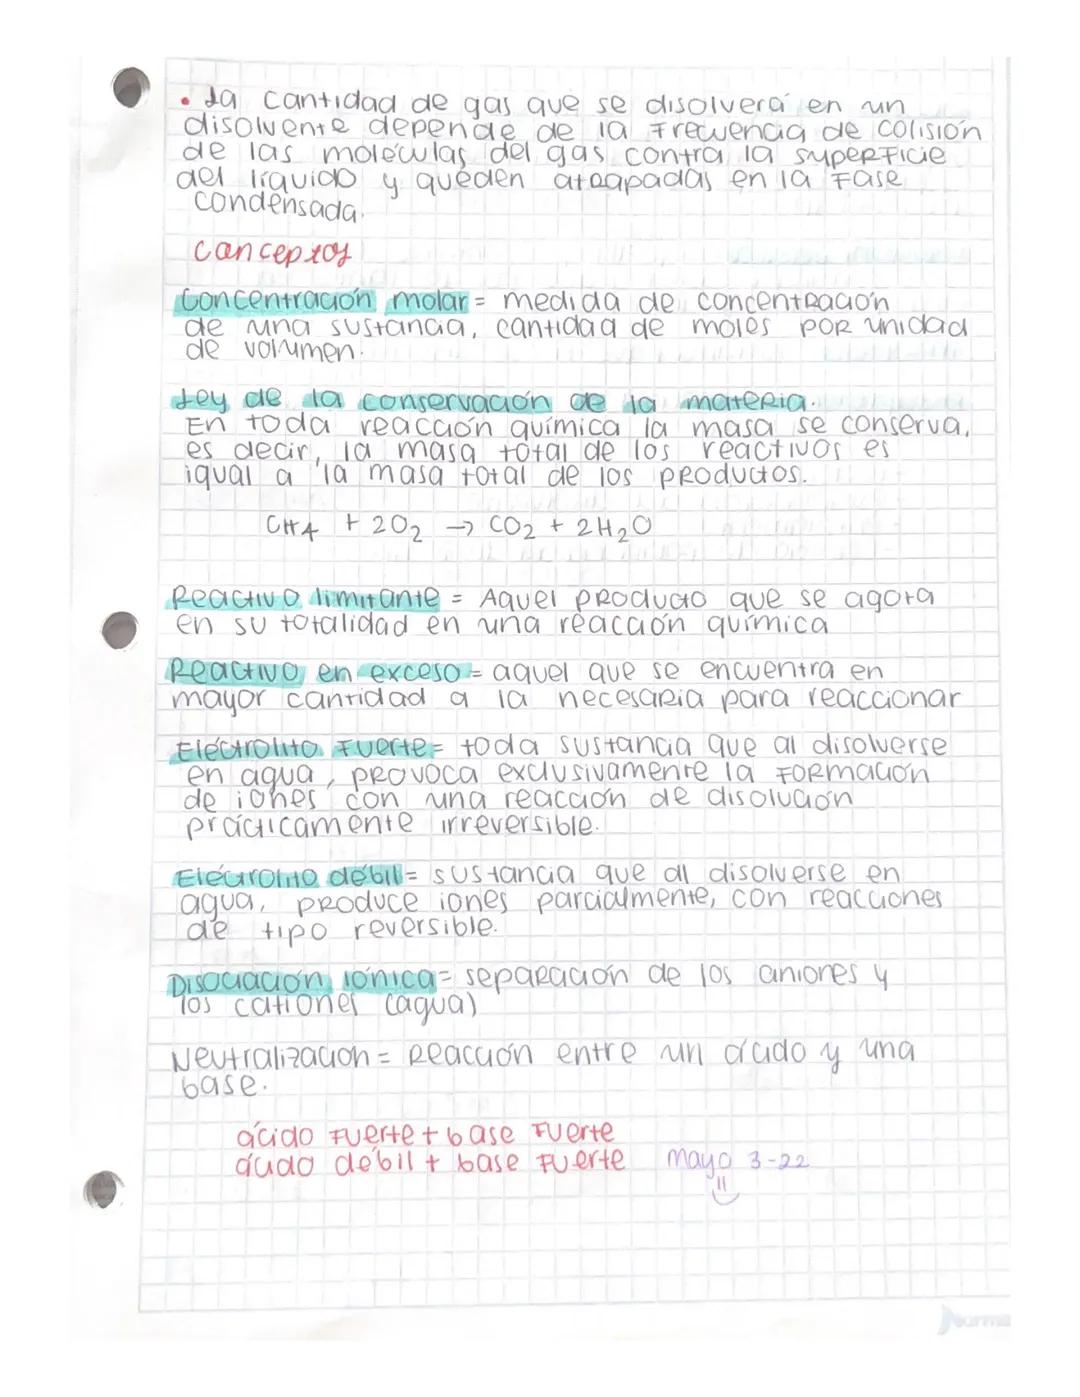 • La cantidad de gas que se disolverá en un
disolvente depende de la frecuencia de colisión
de las moléculas del gas contra la superficie
del líquido y queden atrapadas en la fase
condensada.
Conceptos
Concentración molar = medida de concentración
de una sustancia, cantidad de moles por unidad
de volumen.
Ley de la conservación de la materia.
En toda reacción química la masa se conserva,
es decir, la masa total de los reactivos es
igual a la masa total de los productos.
CH4 + 2O2 → CO2 + 2H2O
Reactivo limitante = Aquel producto que se agota
en su totalidad en una reacción química
Reactivo en exceso = aquel que se encuentra en
mayor cantidad a la necesaria para reaccionar
Eléctrolito Fuerte = toda sustancia que al disolverse
en agua, provoca exclusivamente la formación
de iones con una reacción de disolución
prácticamente irreversible.
Eléctrolito débil = sustancia que al disolverse en
agua, produce iones parcialmente, con reacciones
de tipo reversible.
Disociación iónica = separación de los aniones y
los cationes (agua)
Neutralización = Reacción entre un ácido y una
base.
ácido fuerte + base fuerte
ácido débil + base fuerte Mayo 3-22
Norma